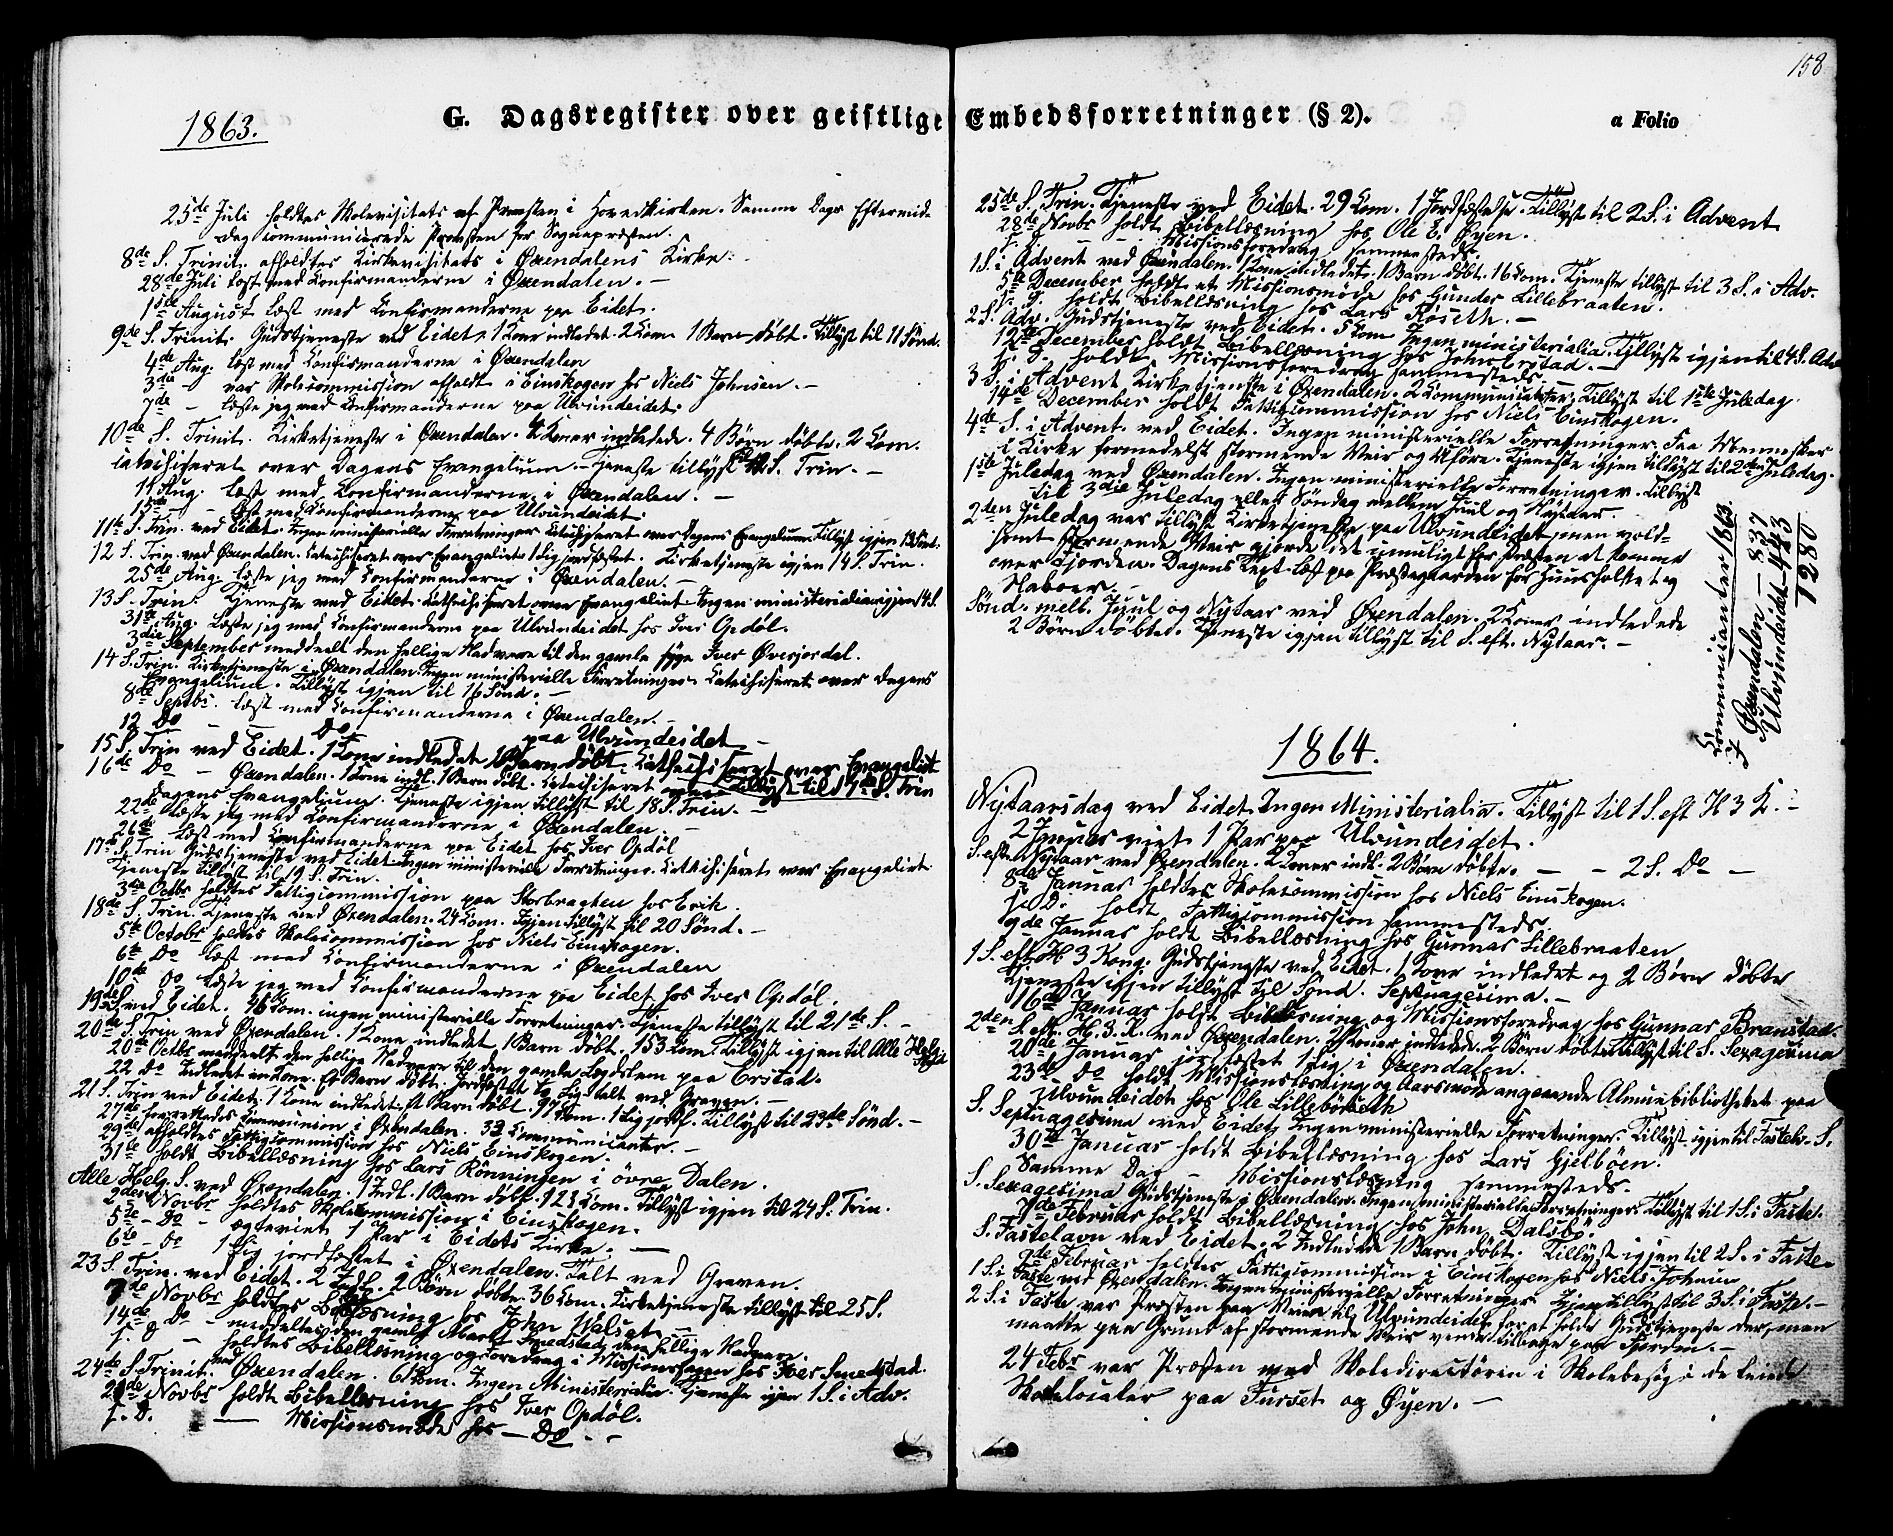 158
1863.
G. Dagsregister over geistlige Embedsforretninger (§ 2).
a Folio
25de Juli holdtes Skolevisitats af Provsten i Hovedkirken. Samme Dags Eftermid-
dag communicerede Provsten for Sognepræsten.
8de S. Trinit. afholdtes Kirkevisitats i Øxendalens Kirke.
28de Juli læst med Confirmanderne i Øxendalen. –
1ste August læst med Confirmanderne paa Eidet.
9de S. Trinit. Gudstjeneste ved Eidet. 1 Kone indledet. 2 Kom. 1 Barn døbt. Tillyst til 11 Sönd.
4de Aug. læst med Confirmanderne i Øxendalen
3die – var Skolecommission afholdt i Einskogen hos Niels Johnsen. –
7de – læste jeg med Confirmanderne paa Ulvundeidet.
10de S. Trinit. Kirketjeneste i Øxendalen. 4 Koner indledede. 4 Börn döbte. 2 Kom.
catechiseret over Dagens Evangelium. – Tjeneste tillyst til 12 S. Trin. –
11 Aug. læst med Confirmanderne i Øxendalen. –
15de – læst med Confirmanderne paa Ulvundeidet.
11te S. Trin. ved Eidet. Ingen ministerielle Forretninger. Catechiseret over Dagens Evangelium. Tillyst igjen 13 Sönt.
12 S. Trin. ved Øxendalen. Catechiseret over Evangeliet. 1 Lig jordfæstet. Kirketjeneste igjen 14 S. Trin.
25de Aug. læste jeg med Confirmanderne i Øxendalen. –
13 S. Trin. Tjeneste ved Eidet. Catechiseret over Evangeliet. Ingen ministerialia igjen 14 S.
31te Aug. læste jeg med Confirmanderne paa Ulvundeidet hos Iver Opdöl.
3die September meddeelt den hellige Nadvere til den gamle syge Iver Øvesjordal.
14 S. Trin. Kirketjeneste i Øxendalen. Ingen ministerielle Forretninger. Catechiseret over Dagens
Evangelium. Tillyst igjen til 16 Sönd. –
8de Septbr. læst med Confirmanderne i Øxendalen. –
12 Do – Do – paa Ulvundeidet –
15 S. Trin ved Eidet. 1 Kone indledet 1 Barn döbt. Catechiseret over Evangeliet
Tillyst til 17de S. Trin
16de Do – Øxendalen. 1 Kone indl. 1 Barn döbt. Catechiseret over
Dagens Evangelium. Tjeneste igjen tillyst til 18 S. Trin. –
22de læste jeg med Confirmanderne i Øxendalen. –
26de læst med Confirmanderne paa Eidet hos Iver Opdöl
17de S. Trin Gudstjeneste ved Eidet. Ingen ministerielle Forretninger. Catechiseret over Evangeliet.
Tjeneste tillyst til 19 S. Trin.
3die Octbr holdtes Fattigcommission paa Storbragten hos Erik.
18de S. Trin. Tjeneste ved Øxendalen. 24 Kom. Igjen tillyst til 20 Sönd. –
5te Octobr holdtes Skolecommission hos Niels Einskogen.
6te Do læst med Confirmanderne i Øxendalen
10de Do læste jeg med Confirmanderne paa Eidet hos Iver Opdöl.
19de S. ved Eidet. 46 Kom. ingen ministerielle Forretninger. Tjeneste tillyst til 21de S. –
20de S. Trin ved Øxendalen. 1 Kone indledet 1 Barn döbt. 153 Kom. Tillyst igjen til Alle Helge
20de Octbr meddeelt den hellige Nadvere til den gamle Legdslem paa Erstad.
22 Do Indledet en Kone. Et Barn döbt. Jordfæstet et Lig. Talt ved Graven. –
21 S. Trin ved Eidet. 1 Kone indledet. et Barn döbt. 94 Kom. 1 Lig jordf. Tillyst til 23de Sönd. –
27de forrettedes Communion i Øxendalen. 32 Communicanter. –
29de afholdtes Fattigcommission hos Niels Einskogen.
31te holdt Bibellæsning hos Lars Rönningen i övre Dalen.
Alle Helg. S. ved Øxendalen. 1 Indl. 1 Barn döbt. 123 Kom. Tillyst igjen til 24 S. Trin.
2den Novbr holdtes Skolecommission i Einskogen.
5te – Do – ægteviet 1 Par i Eidets Kirke. –
6te – Do 1 Lig jordfæstet i Øxendalen. Talt ved Graven.
23 S. Trin. ved Eidet. 2 Indl. 2 Börn döbte. 36 Kom. Kirketjeneste tillyst til 25 S.
7de Novbr holdtes Bibellæsning hos John Walset –
14de Do – meddeeltes den gamle Marit Smedstad den hellige Nadvere.
s. D – holdtes Bibellæsning og Foredrag i Missionssagen hos Iver Smedstad.
24de S. Trinit. ved Øxendalen. 6 Kom. Ingen Ministerialia. Tjeneste igjen 1 S. i Adv.
21de Novbr holdt Bibellæsning hos Iver Opdöl.
s. D. – Missionsmøde hos – Do – –
25de S. Trin. Tjeneste ved Eidet. 29 Kom. 1 Jordfæstelse. Tillyst til 2 S. i Advent
28de Novbr holdt Bibellæsning hos Ole E. Øyen.
s. – – Missionsforedrag sammesteds.
1 S. i Advent ved Øxendalen. 1 Kone indledet. 1 Barn døbt. 16 Kom. Tjeneste tillyst til 3 S. i Adv.
5te December holdt et Missionsmøde hos Gunder Lillebraaten.
s. D. holdt Bibellæsning hos Lars Röseth. –
2 S. Adv. Gudstjeneste ved Eidet. 5 Kom Ingen ministerialia. Tillyst igjen til 4 S. Adv
12te December holdt Bibellæsning hos John Erstad. –
s. D. holdt Missionsforedrag sammesteds –
3 S. i Advent Kirketjeneste i Øxendalen. 2 Communicanter. Tillyst til 1ste Juledag.
14de December holdt Fattigcommission hos Niels Einskogen.
4de S. i Advent ved Eidet. Ingen ministerielle Forretninger. Faa Mennesker
i Kirke formedelst stormende Veir og Uføre. Tjeneste igjen tillyst til 2den Juledag.
1ste Juledag ved Øxendalen. Ingen ministerielle Forretninger. Tillyst
til 3die Juledag eller Söndag mellem Juul og Nytaar.
2den Juledag var tillyst Kirketjeneste paa Ulvundeidet, men vold-
somt stormende Veir gjorde det umuligt for Præsten at komme
over Fjorden. Dagens Text læst paa Præstegaarden for Huusfolket og
Naboer. –
Sönd. mell. Juul og Nytaar ved Øxendalen. 2 Koner indledede
2 Börn döbte. Tjeneste igjen tillyst til S. eft. Nytaar. –
Communicanter 1863.
I Øxendalen – 837
Ulvundeidet – 443
1280
1864.
Nytaarsdag ved Eidet. Ingen Ministerialia. Tillyst til 1 S. eft H 3 K. –
2 Januar viet 1 Par paa Ulvundeidet.
S. eft Nytaar ved Øxendalen. 2 Koner indl. 2 Börn döbte. – – 2 S. Do –
8de Januar holdtes Skolecommission hos Niels Einskogen.
s. D. holdt Fattigcommission sammesteds.
9de Januar holdt Bibellæsning hos Gunnar Lillebraaten
1 S. eft H 3 Kong. Gudstjeneste ved Eidet. 1 Kone indledet og 2 Börn döbte
Tjeneste igjen tillyst til Sönd. Septuagesima. –
16de Januar holdt Bibellæsning og Missionsforedrag hos Gunnar Branstad.
2den S. eft. H. 3. K. ved Øxendalen. 2 Koner indledede. 2 Börn döbte. Tillyst til S. Sexagesima
20de Januar jordfæstet 1 Lig i Øxendalen.
23de Do holdt Missionslæsning og Aarsmøde angaaende Almuebibliotheket paa
Ulvundeidet hos Ole Lillebörseth
S. Septuagesima ved Eidet. Ingen ministerielle Forretninger. Tillyst igjen til Fastel. S.
30te Januar holdt Bibellæsning hos Lars Gjelböen.
Samme Dag – Missionslæsning sammesteds.
S. Sexagesima Gudstjeneste i Øxendalen. Ingen ministerielle Forretninger. Tillyst til 1 S. i Faste.
Februar holdt Bibellæsning hos John Dalsbö.
S. Fastelavn ved Eidet. 2 Indledede 1 Barn döbt. Tillyst igjen til 2 S. i Faste.
9de Februar holdtes Fattigcommission i Einskogen hos Niels Johnsen
1 S. i Faste ved Øxendalen. Ingen ministerielle Forretninger. Igjen tillyst til 3 S. i Faste. –
2 S. i Faste var Præsten paa Veien til Ulvundeidet for at holde Gudstjeneste der, men
maatte paa Grund af stormende Veir vende tilbage paa Fjorden. –
24 Febr var Præsten med Skoledirectören i Skolebesög i de leiede
Skolelocaler paa Furset og Øyen. –